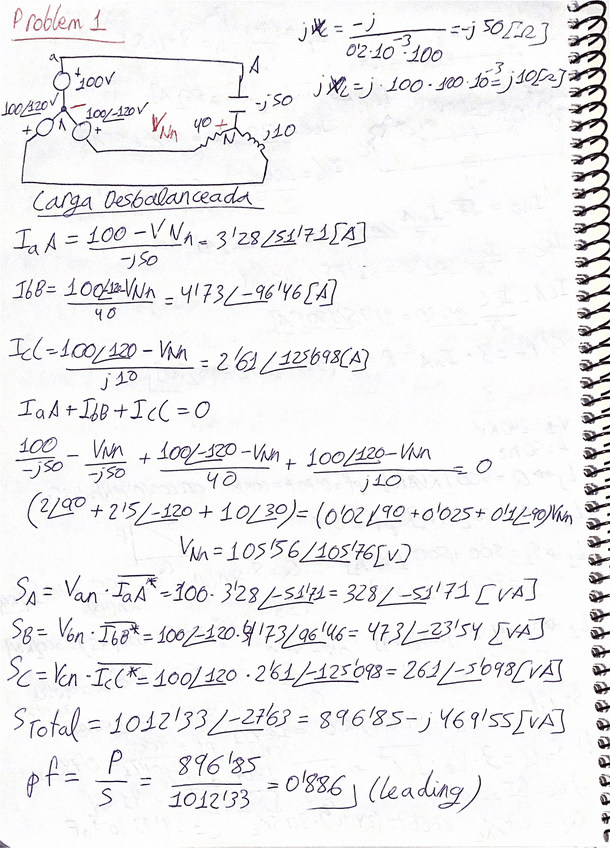 Problem 1
jXc = -j / 0'2·10⁻³·100 = -j 50 [Ω]
jXL = j·100·100·10⁻³ = j10[Ω]
a
A
+
100V
100/120V
100/-120V
-
+
+
n
VNn
-j50
40
+
N
j10
Carga Desbalanceada
IaA = 100 - VNn / -j50 = 3'28∠51'71[A]
IbB = 100∠-120-VNn / 40 = 4'73∠-96'46[A]
IcC = 100∠120 - VNn / j10 = 2'61∠125'098[A]
IaA + IbB + IcC = 0
100 / -j50 - VNn / -j50 + 100∠-120 - VNn / 40 + 100∠120 - VNn / j10 = 0
(2∠90 + 2'5∠-120 + 10∠30) = (0'02∠90 + 0'025 + 0'1∠-90)VNn
VNn = 105'56∠105'76[V]
SA = Van · IaA* = 100· 3'28∠-51'71 = 328∠-51'71 [VA]
SB = Vbn · IbB* = 100∠-120·4'73∠96'46 = 473∠-23'54 [VA]
SC = Vcn · IcC* = 100∠120 · 2'61∠-125'098 = 261∠-5'098[VA]
STotal = 1012'33∠-27'63 = 896'85 - j469'55[VA]
pf = P / S = 896'85 / 1012'33 = 0'886 (leading)